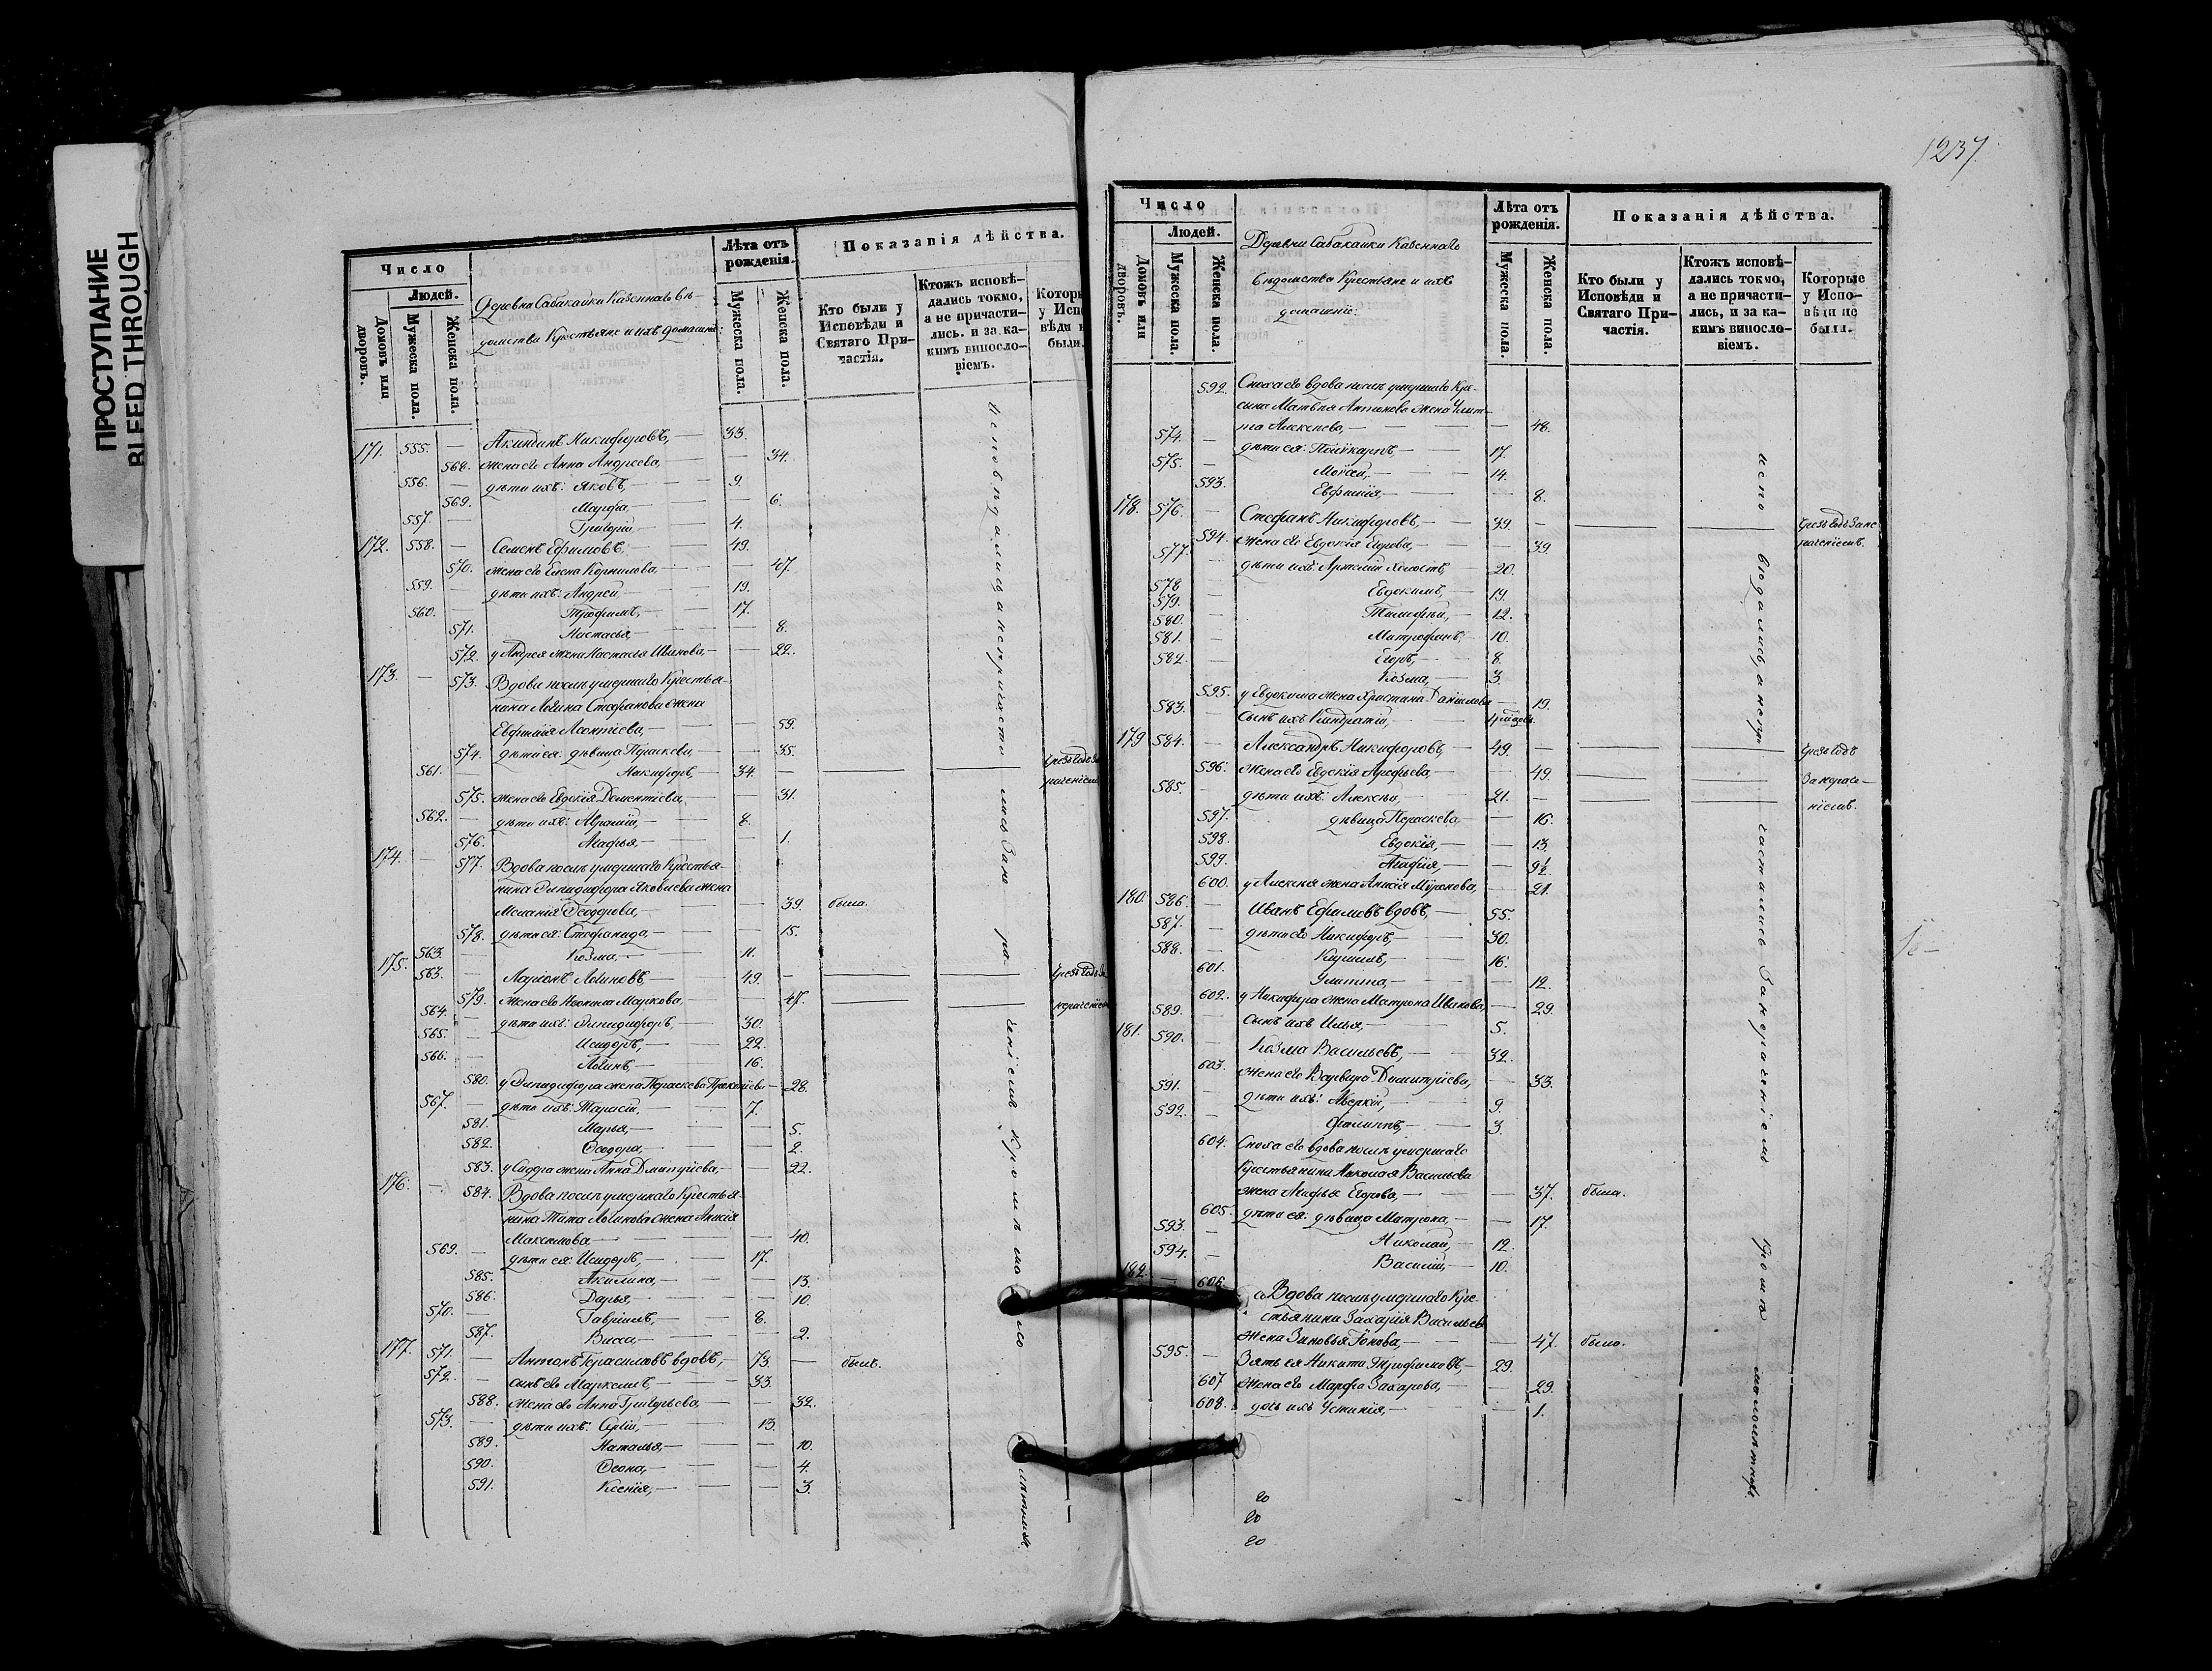 ПРОСТУПАНИЕ
BLEED THROUGH
Число
Людей.
Домовъ или дворовъ.
Мужеска пола.
Женска пола.
Деревни Сабакайки Казеннаго вѣ-
домства Крестьяне и ихъ домашнi:
Лѣта отъ рожденія.
Мужеска пола.
Женска пола.
Показанія дѣйства.
Кто были у Исповѣди и Святаго Причастія.
Ктожъ исповѣдались токмо, а не причастились, и за какимъ винословіемъ.
171. 555. — Акиндинъ Никифоровъ, — 33.
568. жена его Анна Андреева, — 34.
556. — дѣти ихъ: Яковъ, — 9.
569. Марфа, — 6.
557. — Григорій — 4.
172. 558. — Семенъ Ефимовъ, — 49.
570. жена его Елена Корнилова, — 47.
559. — дѣти ихъ: Андрей — 19.
560. — Трофимъ, — 17.
571. Настасья, — 8.
572. у Андрея жена Настасья Иванова, — 22.
173. — 573. Вдова послѣ умершаго Крестья-
нина Логина Стефанова жена
Евфимія Леонтіева, — 59.
574. дѣти ея: дѣвица Параскева, — 35.
561. — Никифоръ, — 34. —
575. жена его Евдокія Дементіева, — 31.
562. — дѣти ихъ: Аврамій, — 8.
576. Агафья, — 1.
174. — 577. Вдова послѣ умершаго Крестья-
нина Эпидифора Яковлева жена
Меланія Ѳеодорова, — 39. была.
578. дѣти ея: Стефанида, — 15.
563. — Козма, — 11.
175. 563. — Ларіонъ Логиновъ, — 49. —
579. жена его Неонила Маркова, — 47. —
564. — дѣти ихъ: Эпидифоръ, — 30.
565. — Исидоръ, — 22.
566. — Логинъ, — 16.
580. у Эпидифора жена Параскева Прокопіева — 28.
567. — дѣти ихъ: Тарасій, — 7.
581. Марья, — 5.
582. Ѳеодора, — 2.
583. у Сидора жена Анна Дмитріева, — 22.
176. — 584. Вдова послѣ умершаго Крестья-
нина Тита Логинова жена Анисія
Максимова — 40.
569. — дѣти ея: Исидоръ, — 17.
585. Акилина, — 13.
586. Дарья, — 10.
570. — Гавріилъ, — 8.
587. Васса, — 2.
177. 571. — Антонъ Герасимовъ вдовъ, — 73. — былъ.
572. — сынъ его Маркелъ, — 33.
588. жена его Анна Григорьева, — 32.
573. — дѣти ихъ: Сергій, 13.
589. Наталья, — 10.
590. Ѳеона, — 4.
591. Ксенія, — 3.
исповѣдались, а не причасти лись за не ра- ченіемъ кромѣ мало лѣтныхъ.
1237.
Число
Людей.
Домовъ или дворовъ.
Мужеска пола.
Женска пола.
Деревни Сабакайки Казеннаго
вѣдомства Крестьяне и ихъ
домашніе:
Лѣта отъ рожденія.
Мужеска пола.
Женска пола.
Показанія дѣйства.
Кто были у Исповѣди и Святаго Причастія.
Ктожъ исповѣдались токмо, а не причастились, и за какимъ винословіемъ.
Которые у Исповѣди не были.
592. Сноха его вдова послѣ умершаго
сына Матвѣя Антонова жена Улит-
та Алексѣева, — 48.
574. — дѣти ея: Поликарпъ — 17.
575. — Моѵсей, — 14.
593. Евфимія, — 8.
178. 576. — Стефанъ Никифоровъ, — 39. —
594. жена его Евдокія Егорова, — 39.
577. — дѣти ихъ: холостъ — 20.
578. — Евдокимъ, — 19.
579. — Тимофей, — 12.
580. Митрофанъ, — 10.
581. — Егоръ, — 8.
582. — Козма, — 3.
595. у Евдокима жена Христина Данилова — 19.
583. — сынъ ихъ Кондратій, —
179 584. — Александръ Никифоровъ, — 49. — чрезъ годъ
596. жена его Евдокія Арефьева, — 49. — За нерач-
585. — дѣти ихъ: Алексѣй, — 21. — ніемъ.
597. дѣвица Параскева — 16.
598. Евдокія, — 13.
599. Агафія, — 9½
600. у Алексѣя жена Анисія Миронова, — 21.
180. 586. — Иванъ Ефимовъ вдовъ, — 55.
587. — дѣти его Никифоръ, — 30.
588. — Кирилъ, — 16.
601. Улитта, — 12.
602. у Никифора жена Матрона Иванова, — 29.
589. — сынъ ихъ Илья, — 5.
181. 590. — Козма Васильевъ, — 32.
603. жена его Варвара Димитріева, — 33.
591. — дѣти ихъ: Аверкій, — 9.
592. — Филиппъ, — 3.
604. Сноха его вдова послѣ умершаго
Крестьянина Николая Васильева
жена Агафья Егорова, — 37. была.
605. дѣти ея: дѣвица Матрона, — 17.
593. — Николай, — 12.
594. — Василій, — 10.
182. — 606. Вдова послѣ умершаго Кре-
стьянина Захарія Васильева
жена Зиновья Іонова, — 47. была.
595. — Зять ея Никита Трофимовъ, — 29.
607 жена его Марфа Захарова, — 29.
608. дочь ихъ Устинія, — 1.
испо вѣдались, а не при частились за нераченіемъ кромѣ малолѣтныхъ.